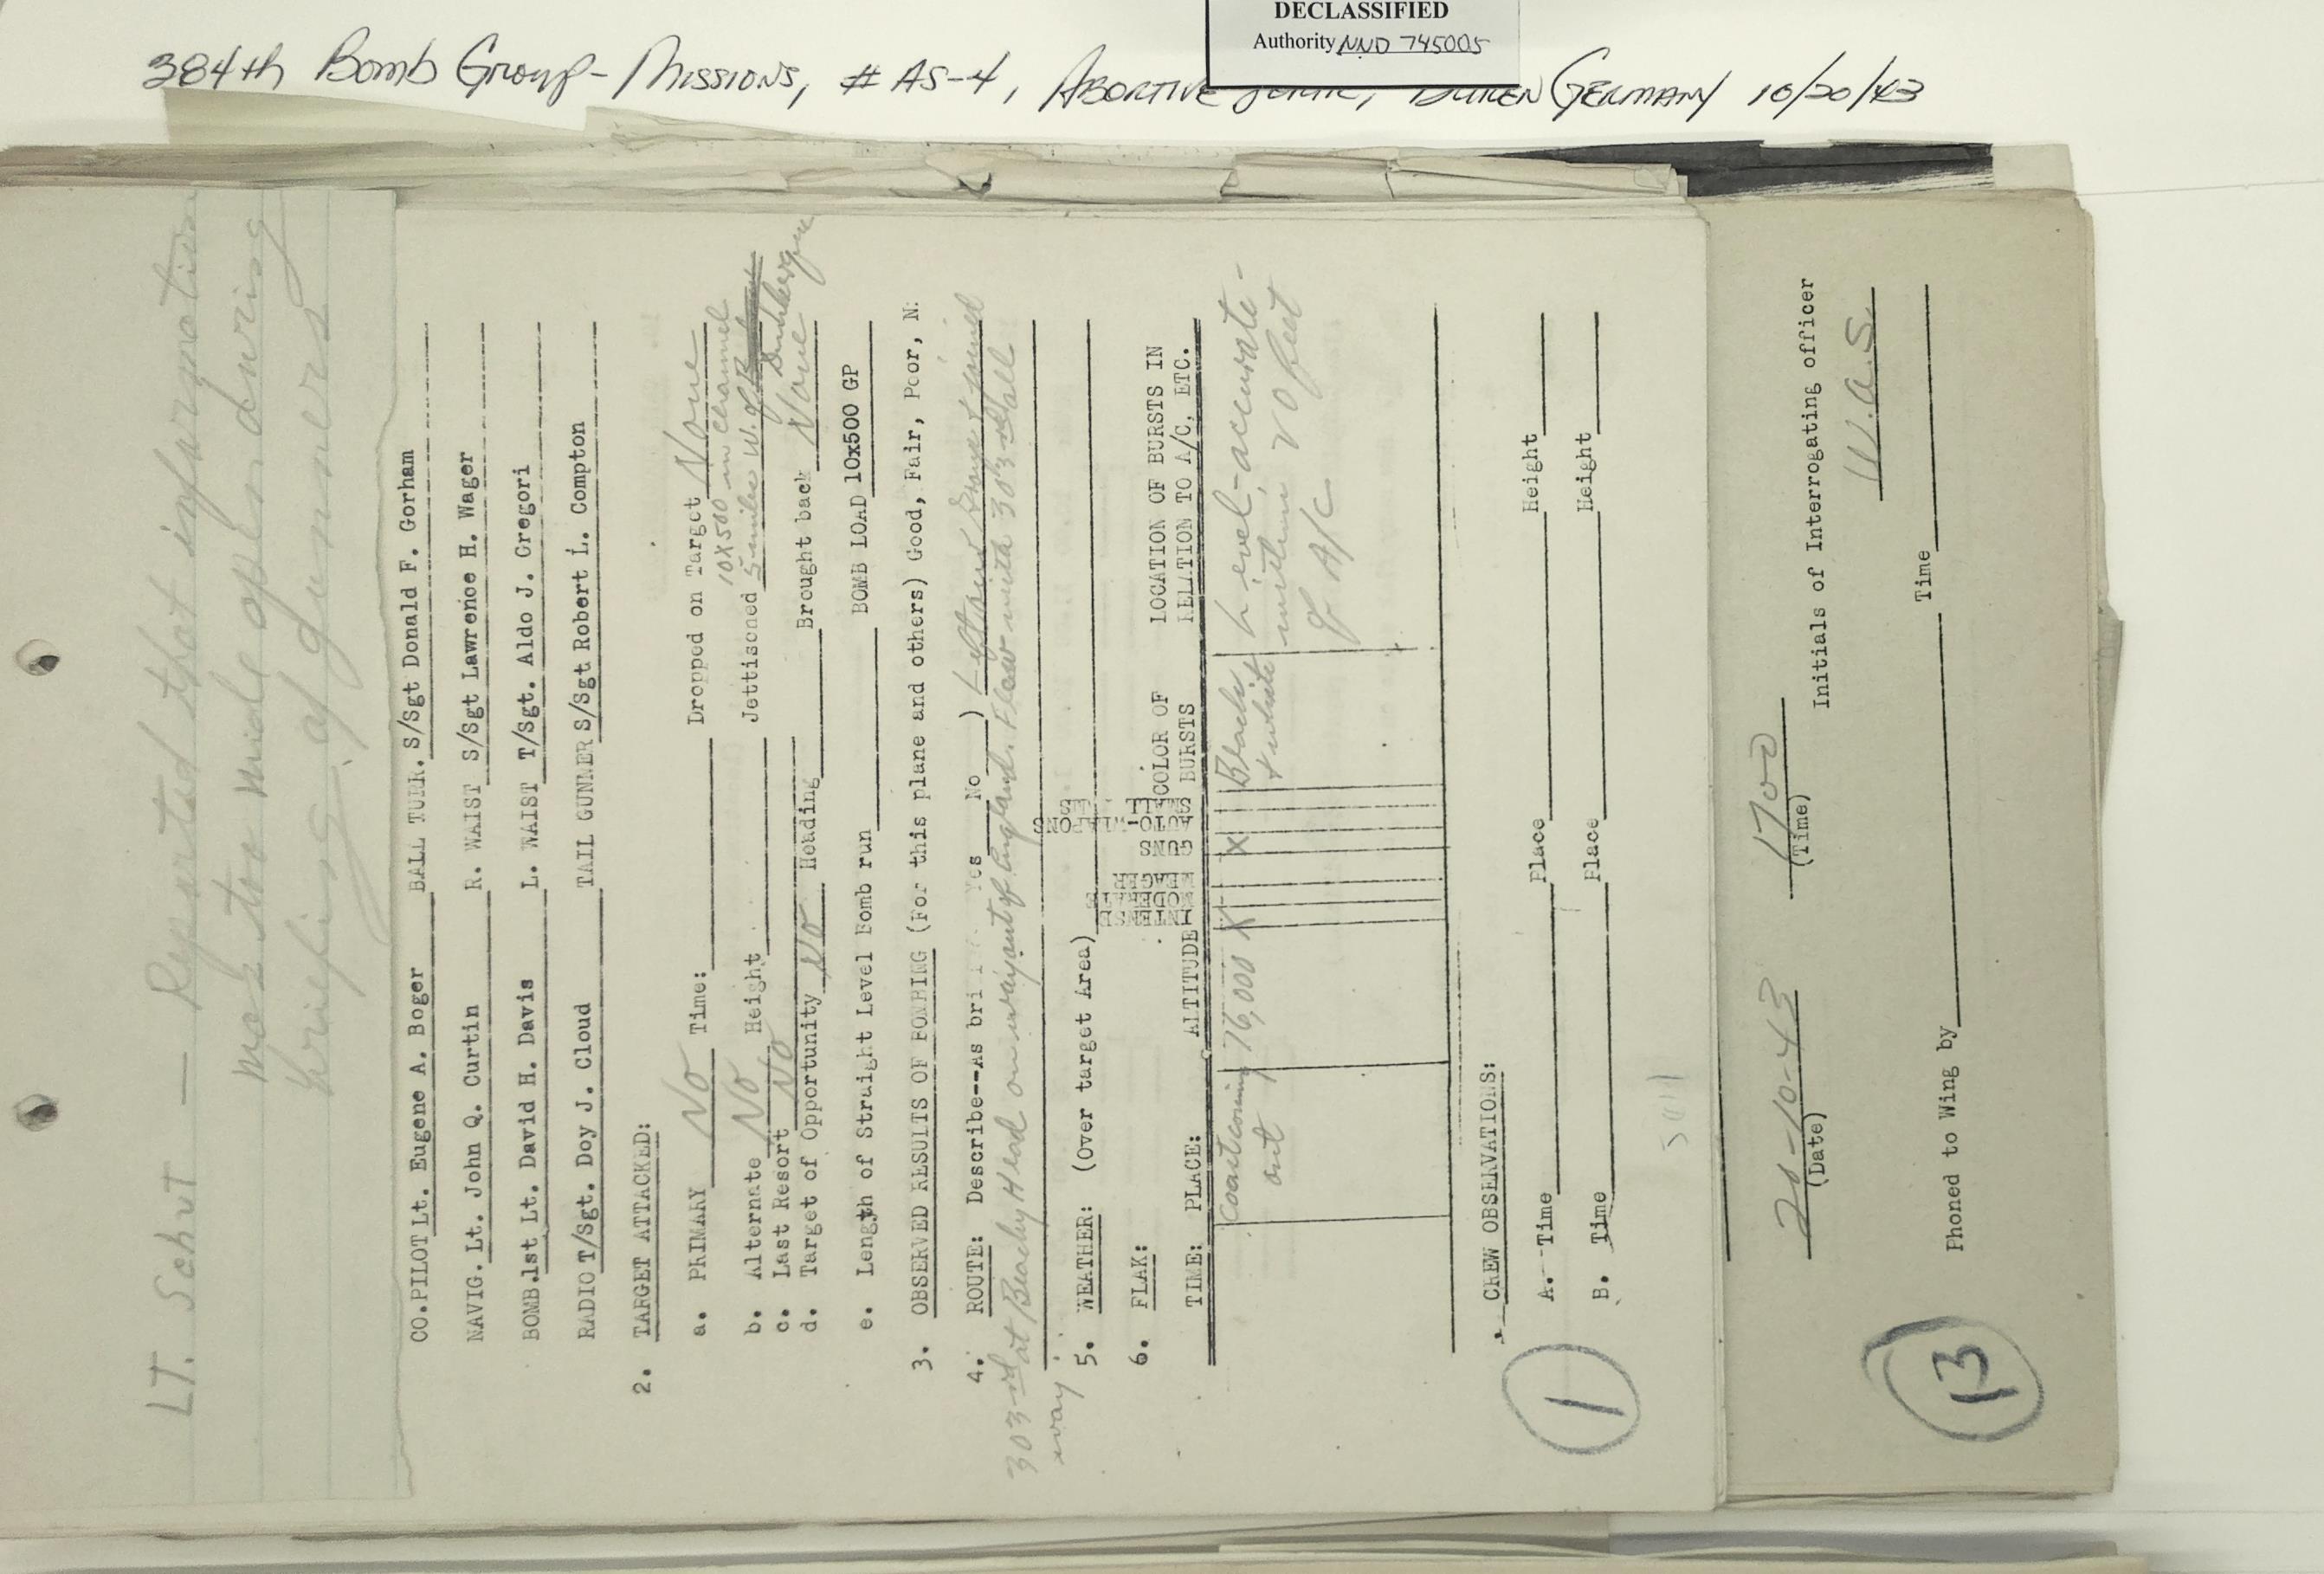 DECLASSIFIED
Authority NND 745005
384th Bomb Group - Missions, # AS-4, Abortive Duren Germany 10/20/43
LT. Schut — Reported that information
was too wide open during
briefing of gunners
CO.PILOT Lt. Eugene A. Boger BALL TURR. S/Sgt Donald F. Gorham
NAVIG. Lt. John Q. Curtin R. WAIST S/Sgt Lawrence H. Wager
BOMB. 1st Lt. David H. Davis L. WAIST T/Sgt. Aldo J. Gregori
RADIO T/Sgt. Doy J. Cloud TAIL GUNNER S/Sgt Robert L. Compton
2. TARGET ATTACKED:
a. PRIMARY No Time: Dropped on Target None
10X500 in channel
b. Alternate No Height Jettisoned 5 miles W. of
Dunkerque
c. Last Resort No
d. Target of Opportunity NO Heading Brought back None
e. Length of Straight Level Bomb run BOMB LOAD 10x500 GP
3. OBSERVED RESULTS OF BOMBING (For this plane and others) Good, Fair, Poor, N:
4. ROUTE: Describe--As bri Yes No ) Left our Group & joined
303rd at Beachy Head on way out of England. Flew with 303rd all
way
5. WEATHER: (over target Area)
6. FLAK:
TIME: PLACE: ALTITUDE INTENSE MODERATE MEAGER GUNS AUTO-WEAPONS SMALL COLOR OF BURSTS LOCATION OF BURSTS IN RELATION TO A/C, ETC.
Coast coming 26,000 X X Black Level - accurate -
out & white within 20 feet
of A/C
CREW OBSERVATIONS:
A. Time Place Height
B. Time Place Height
1
20-10-43 1700
(Date) (Time) Initials of Interrogating officer
W.A.S.
Phoned to Wing by Time
13